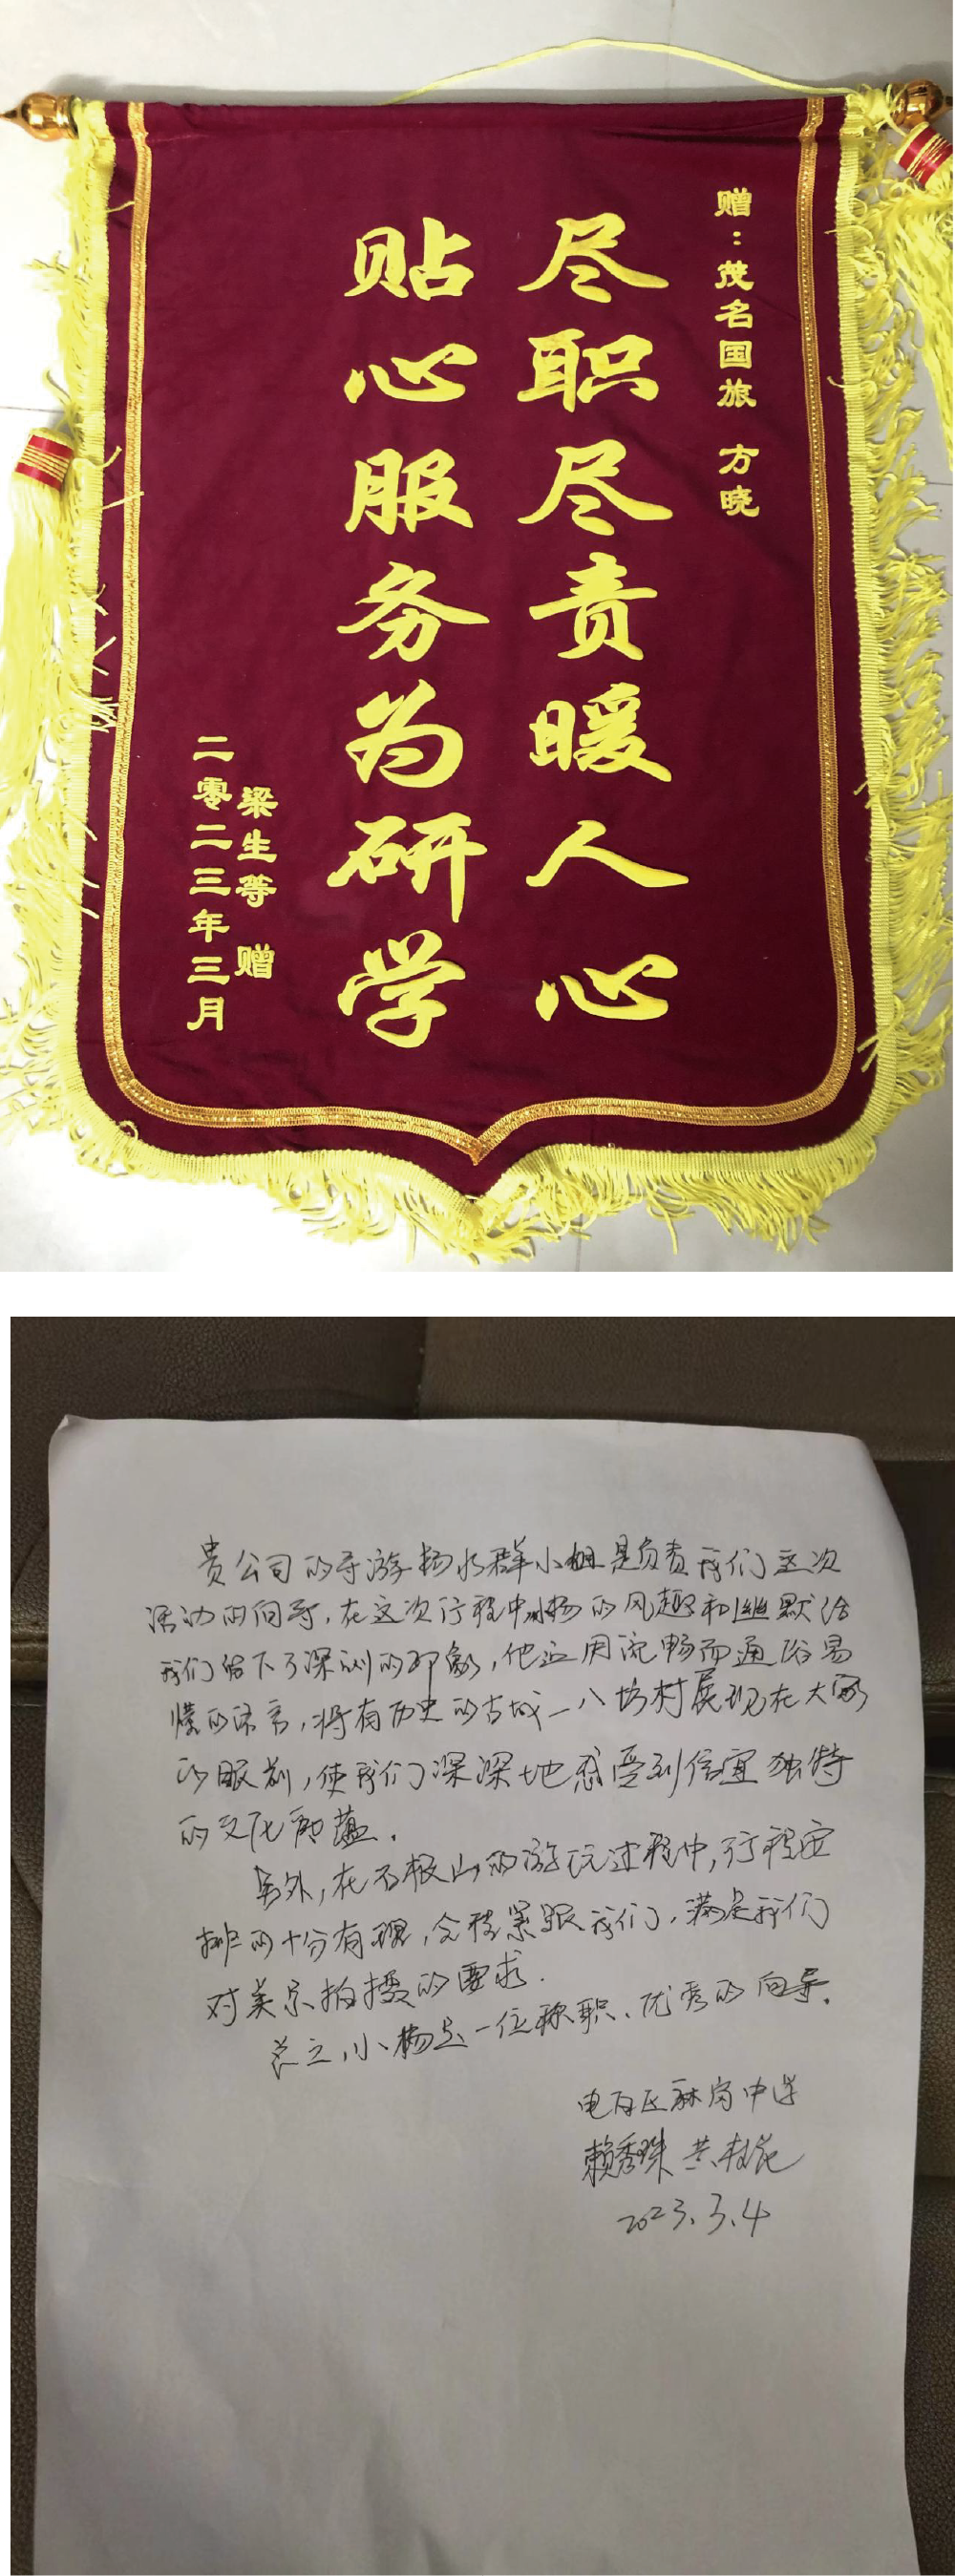 赠：茂名国旅 方晓
尽职尽责暖人心
贴心服务为研学
梁生等 赠
二零二三年三月
贵公司的导游杨水群小姐是负责我们这次
活动的向导，在这次行程中小杨的风趣和幽默给
我们留下了深刻的印象，他运用流畅而通俗易
懂的语言，将有历史的古城一八坊村展现在大家
的眼前，使我们深深地感受到信宜独特
的文化底蕴．
另外，在石根山的游玩过程中，行程安
排的十分有理，全程紧跟我们，满足我们
对美景拍摄的要求．
总之，小杨是一位称职、优秀的向导．
电白区麻岗中学
赖秀珠
2023.3.4